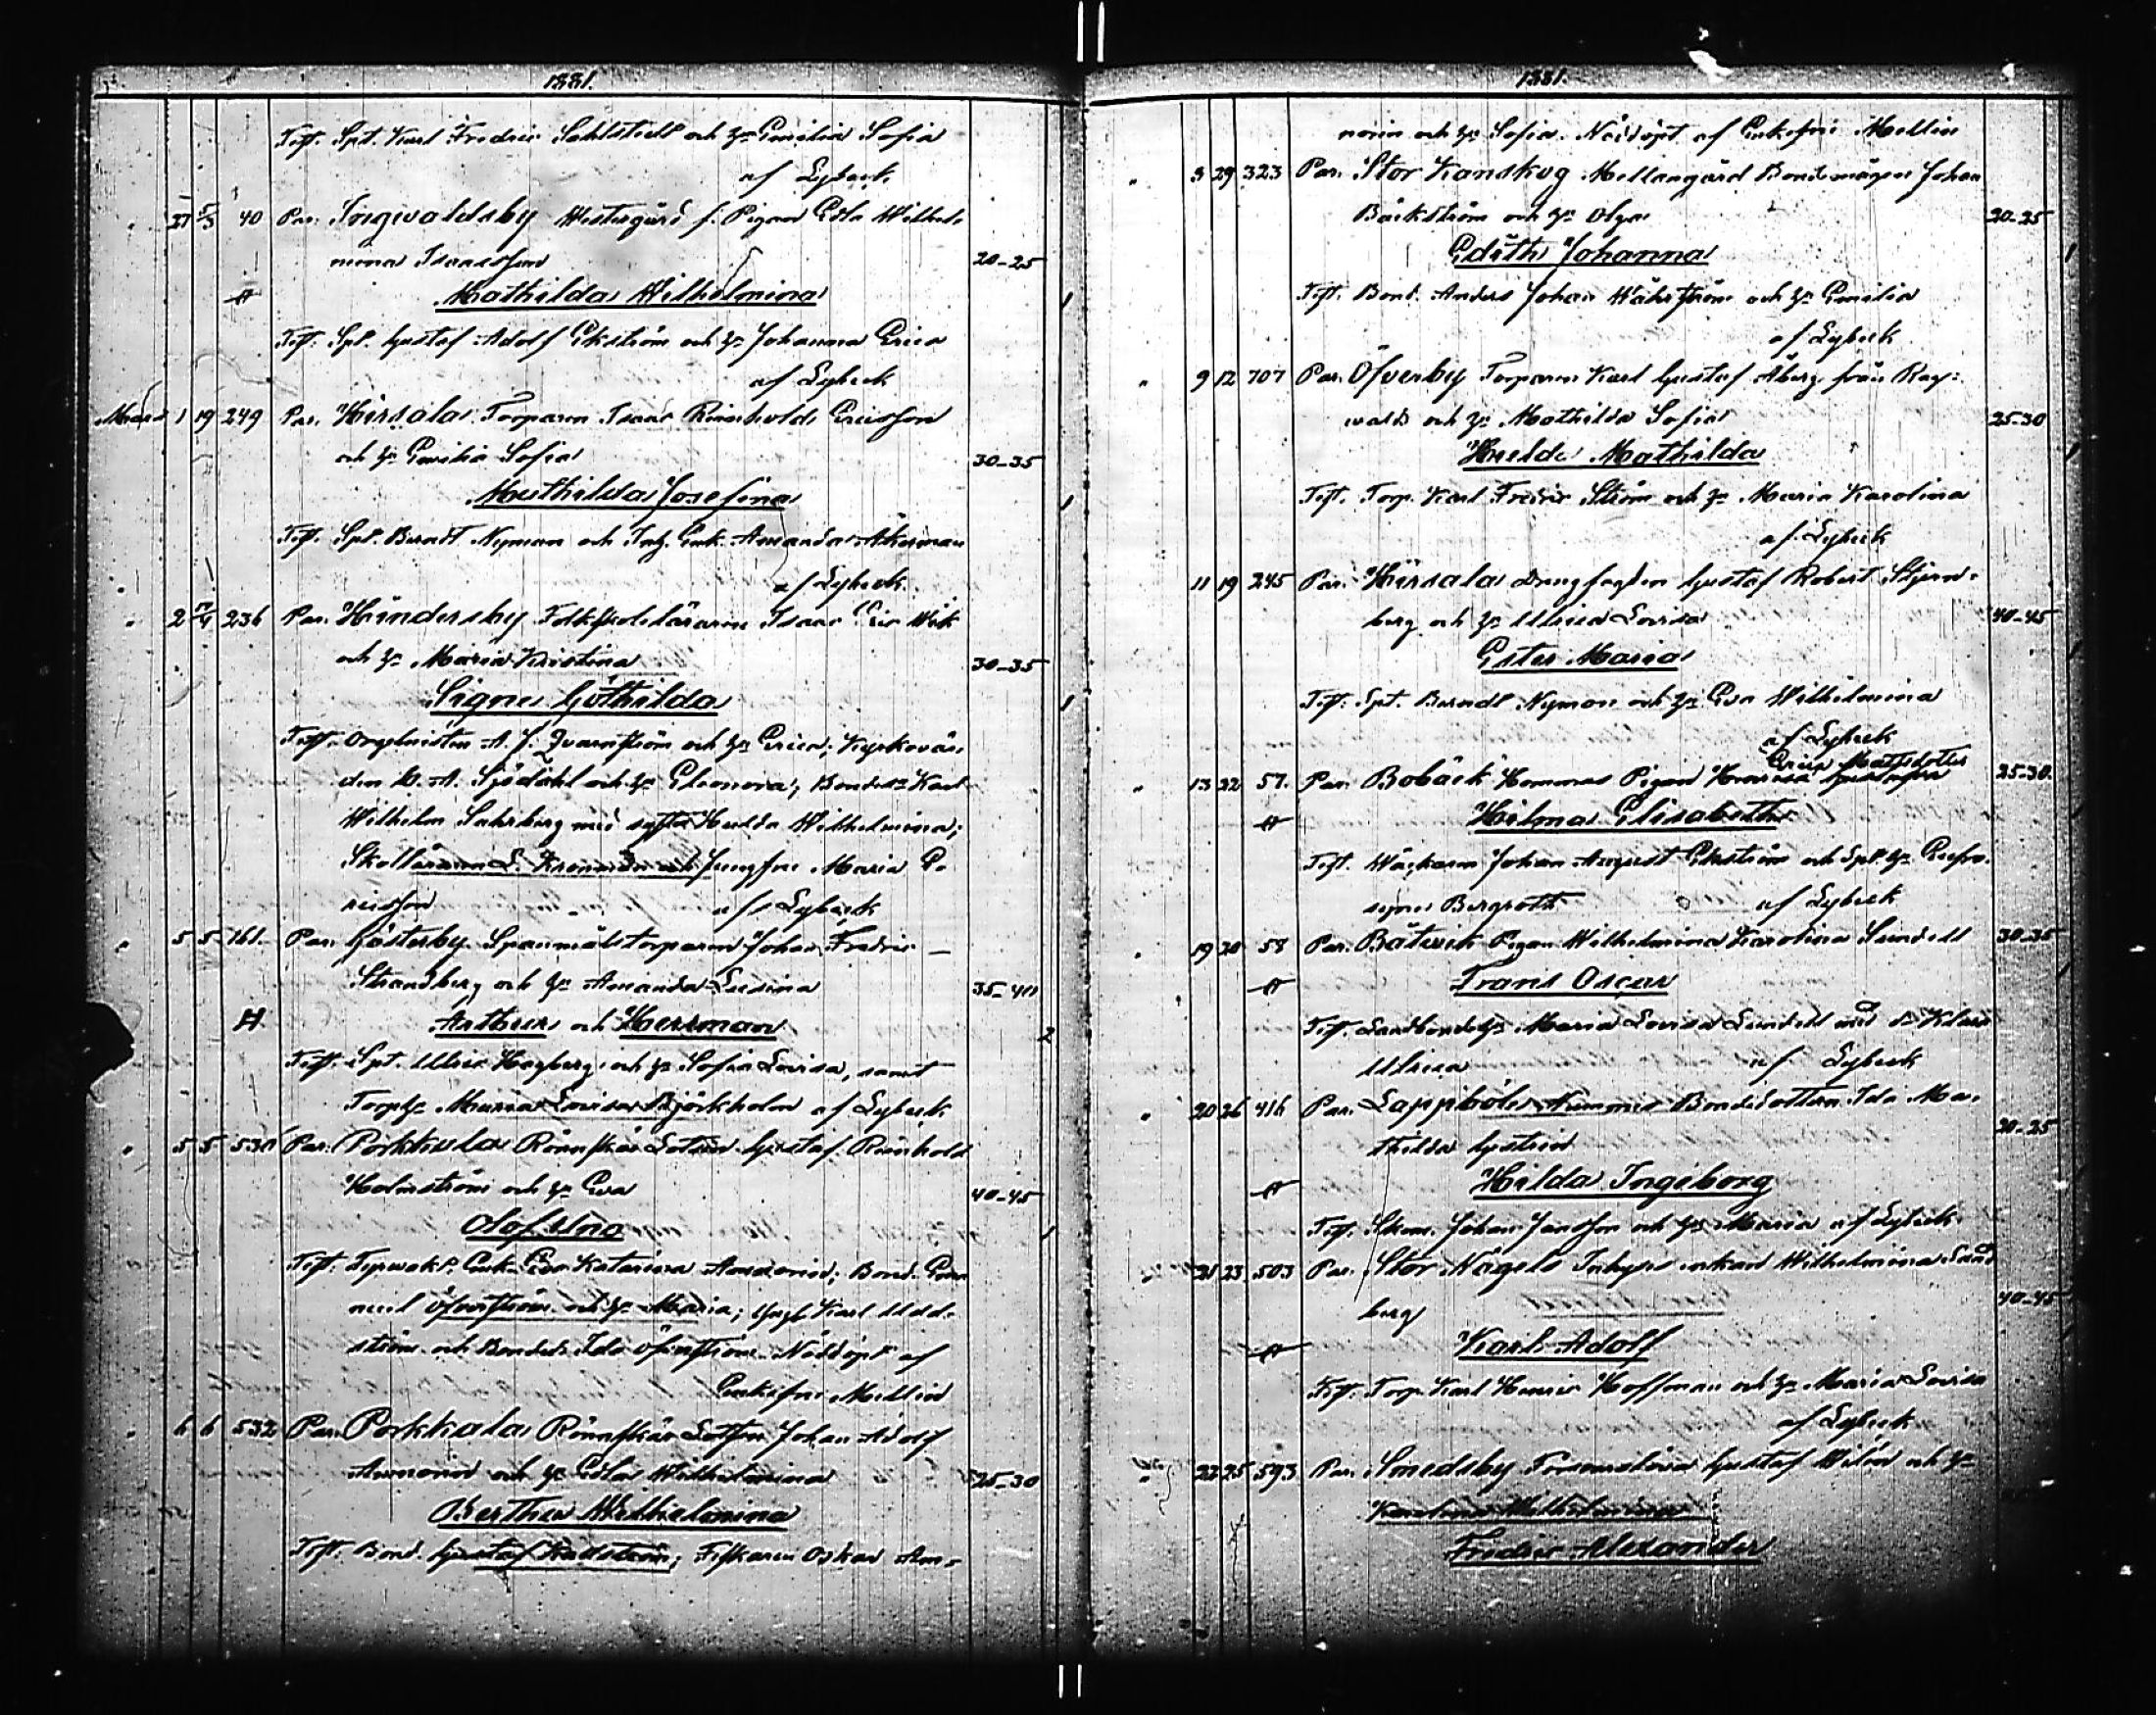 1881.
Test. Spt. Karl Fredric Sahlstedt och h. Emilia Sofia
af Lybeck
27 5/3 40 Par. Ingwaldsby Westergård f. Pigan Edla Wilhel-
mina Isaacsson 20-25
Mathilda Wilhelmina 1
Test. Spt. Gustaf Adolf Ekström och h. Johanna Erica
af Lybeck
Mars 1 19 249 Par. Hirsala Torparen Isaac Reinhold Ericsson
och h. Emilia Sofia 30-35
Mathilda Josefina 1
Test. Spt. Berndt Nyman och Inh. Enk. Amanda Åkerman
af Lybeck
2 236 Par. Hindersby Folkskolelärarne Isaac Wik
och h. Maria Kristina 30-35
Signe Göthilda 1
Test. Orgelnisten A. J. Qvarnström och h. Erica; Kyrkovär-
den A. Sjödahl och h. Eleonora; Bondes. Karl
Wilhelm Sahrberg med syster Hulda Wilhelmina;
Skollärarn L. och Jungfru Maria E-
ricsson af Lybeck
5 5 161 Par. Gösterby Spanmålstorparen Johan Fredric
Strandberg och h. Amanda Lucina 35-40
H Arthur och Herman 2
Test. Spt. Ulric Hagberg och h. Sofia Lovisa, samt
Torp.h. Maria Lovisa Björkholm af Lybeck
5 5 530 Par. Porkkala Rönnskär Lotsen Gustaf Reinhold
Holmström och h. Eva 40-45
Olof Uno 1
Test. Enk. Eva Katarina Bond. Ema-
nuel Öfverström och h. Maria; Karl Udd-
ström och Bonded. Ida Öfverström. Nöddöpt af
Enkefru Mellin
6 6 532 Par. Porkkala Rönnskär Lotsen Johan Adolf
och h. Edla Wilhelmina 25-30
Bertha Wilhelmina
Test. Bond. Gustaf Fiskaren Oskar Am-
1881.
norin och h. Sofia. Nöddöpt af Enkefru Mellin
3 29 323 Par. Stor Kanskog Mellangård Bondemågen Johan
Bäckström och h. Olga 20-25
Edith Johanna 1
Test. Bond. Anders Johan Wahrström och h. Emilia
af Lybeck
9 12 707 Par. Öfverby Torparen Karl Gustaf Åberg från Rag-
valds och h. Mathilda Sofia 25-30
Hulda Mathilda 1
Test. Torp. Karl Fredric Ström och h. Maria Karolina
af Lybeck
11 19 245 Par. Hirsala Drängfogden Gustaf Robert Stjern-
berg och h. Ulrica Lovisa 40-45
Ester Maria 1
Test. Spt. Berndt Nyman och h. Eva Wilhelmina
af Lybeck
Erica Mattsdotter
13 22 57. Par. Bobäck Hommas Pigan 25-30.
Hilma Elisabeth
Test. Johan August Ekström och Spt. h. Eufro-
syne Bergroth af Lybeck
19 20 58 Par. Båtvik Pigan Wilhelmina Karolina Sundell 30-35
Frans Oscar
Test. Landbonde h. Maria Lovisa Lindell med d. Klara
Ulrica af Lybeck
20 26 416 Par. Lappböle Nummes Bondedottren Ida Ma-
thilda Gustrin 20-25
Hilda Ingeborg
Test. Johan Jansson och h. Maria af Lybeck
21 23 503 Par. Stor Nägels Inhyses enkan Wilhelmina Sand
berg 40-45
Karl Adolf
Test. Torp. Karl Henric Hoffman och h. Maria Lovisa
af Lybeck
22 25 593 Par. Smedsby Gustaf Wilén och h.
Karolina Wilhelmina
Fredric Alexander